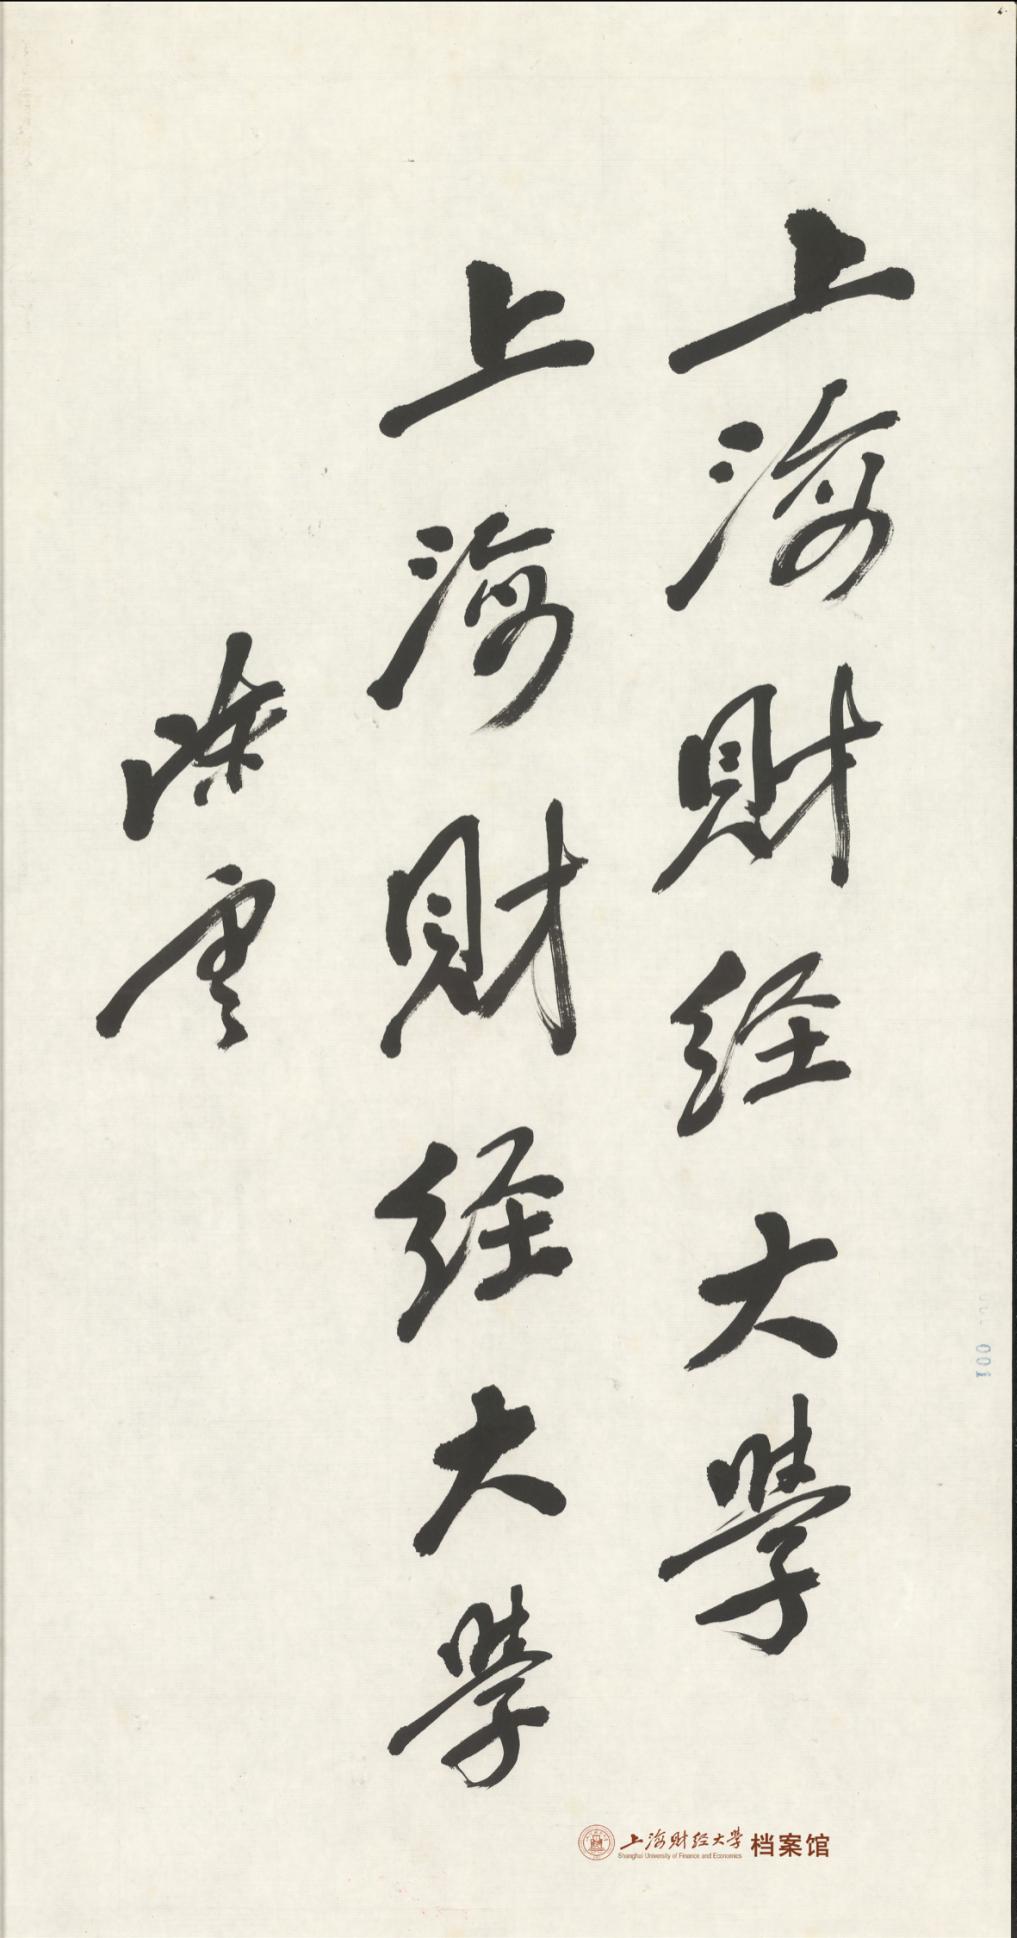 上海财经大學
上海财经大學
陈雲
001
上海财经大學 档案馆
Shanghai University of Finance and Economics